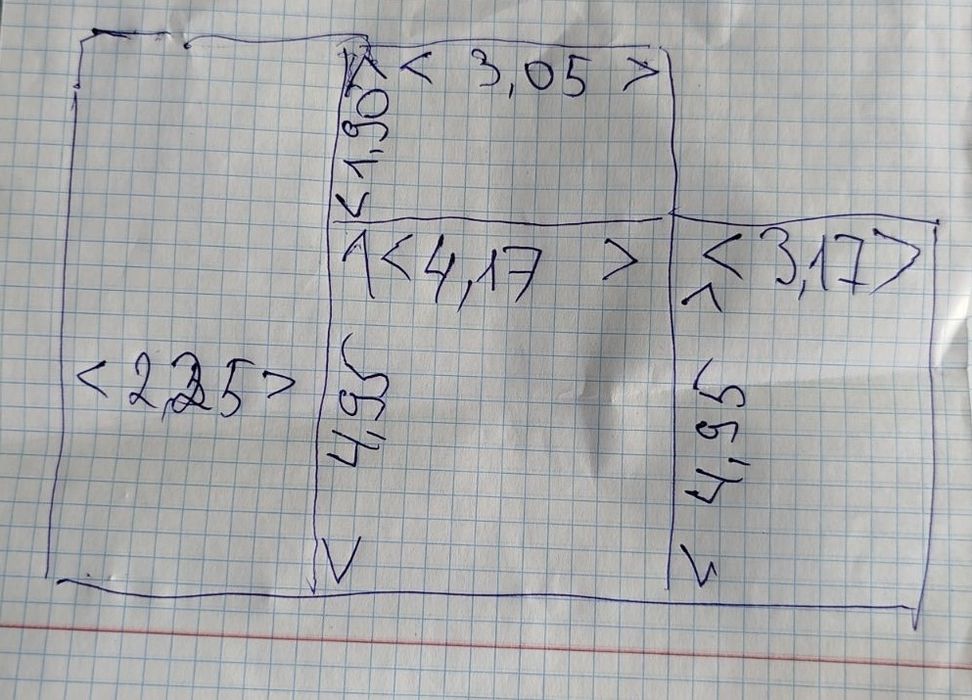 < 3,05 >
< 1,90 >
< 4,17 >
< 3,17 >
< 4,95 >
< 4,95 >